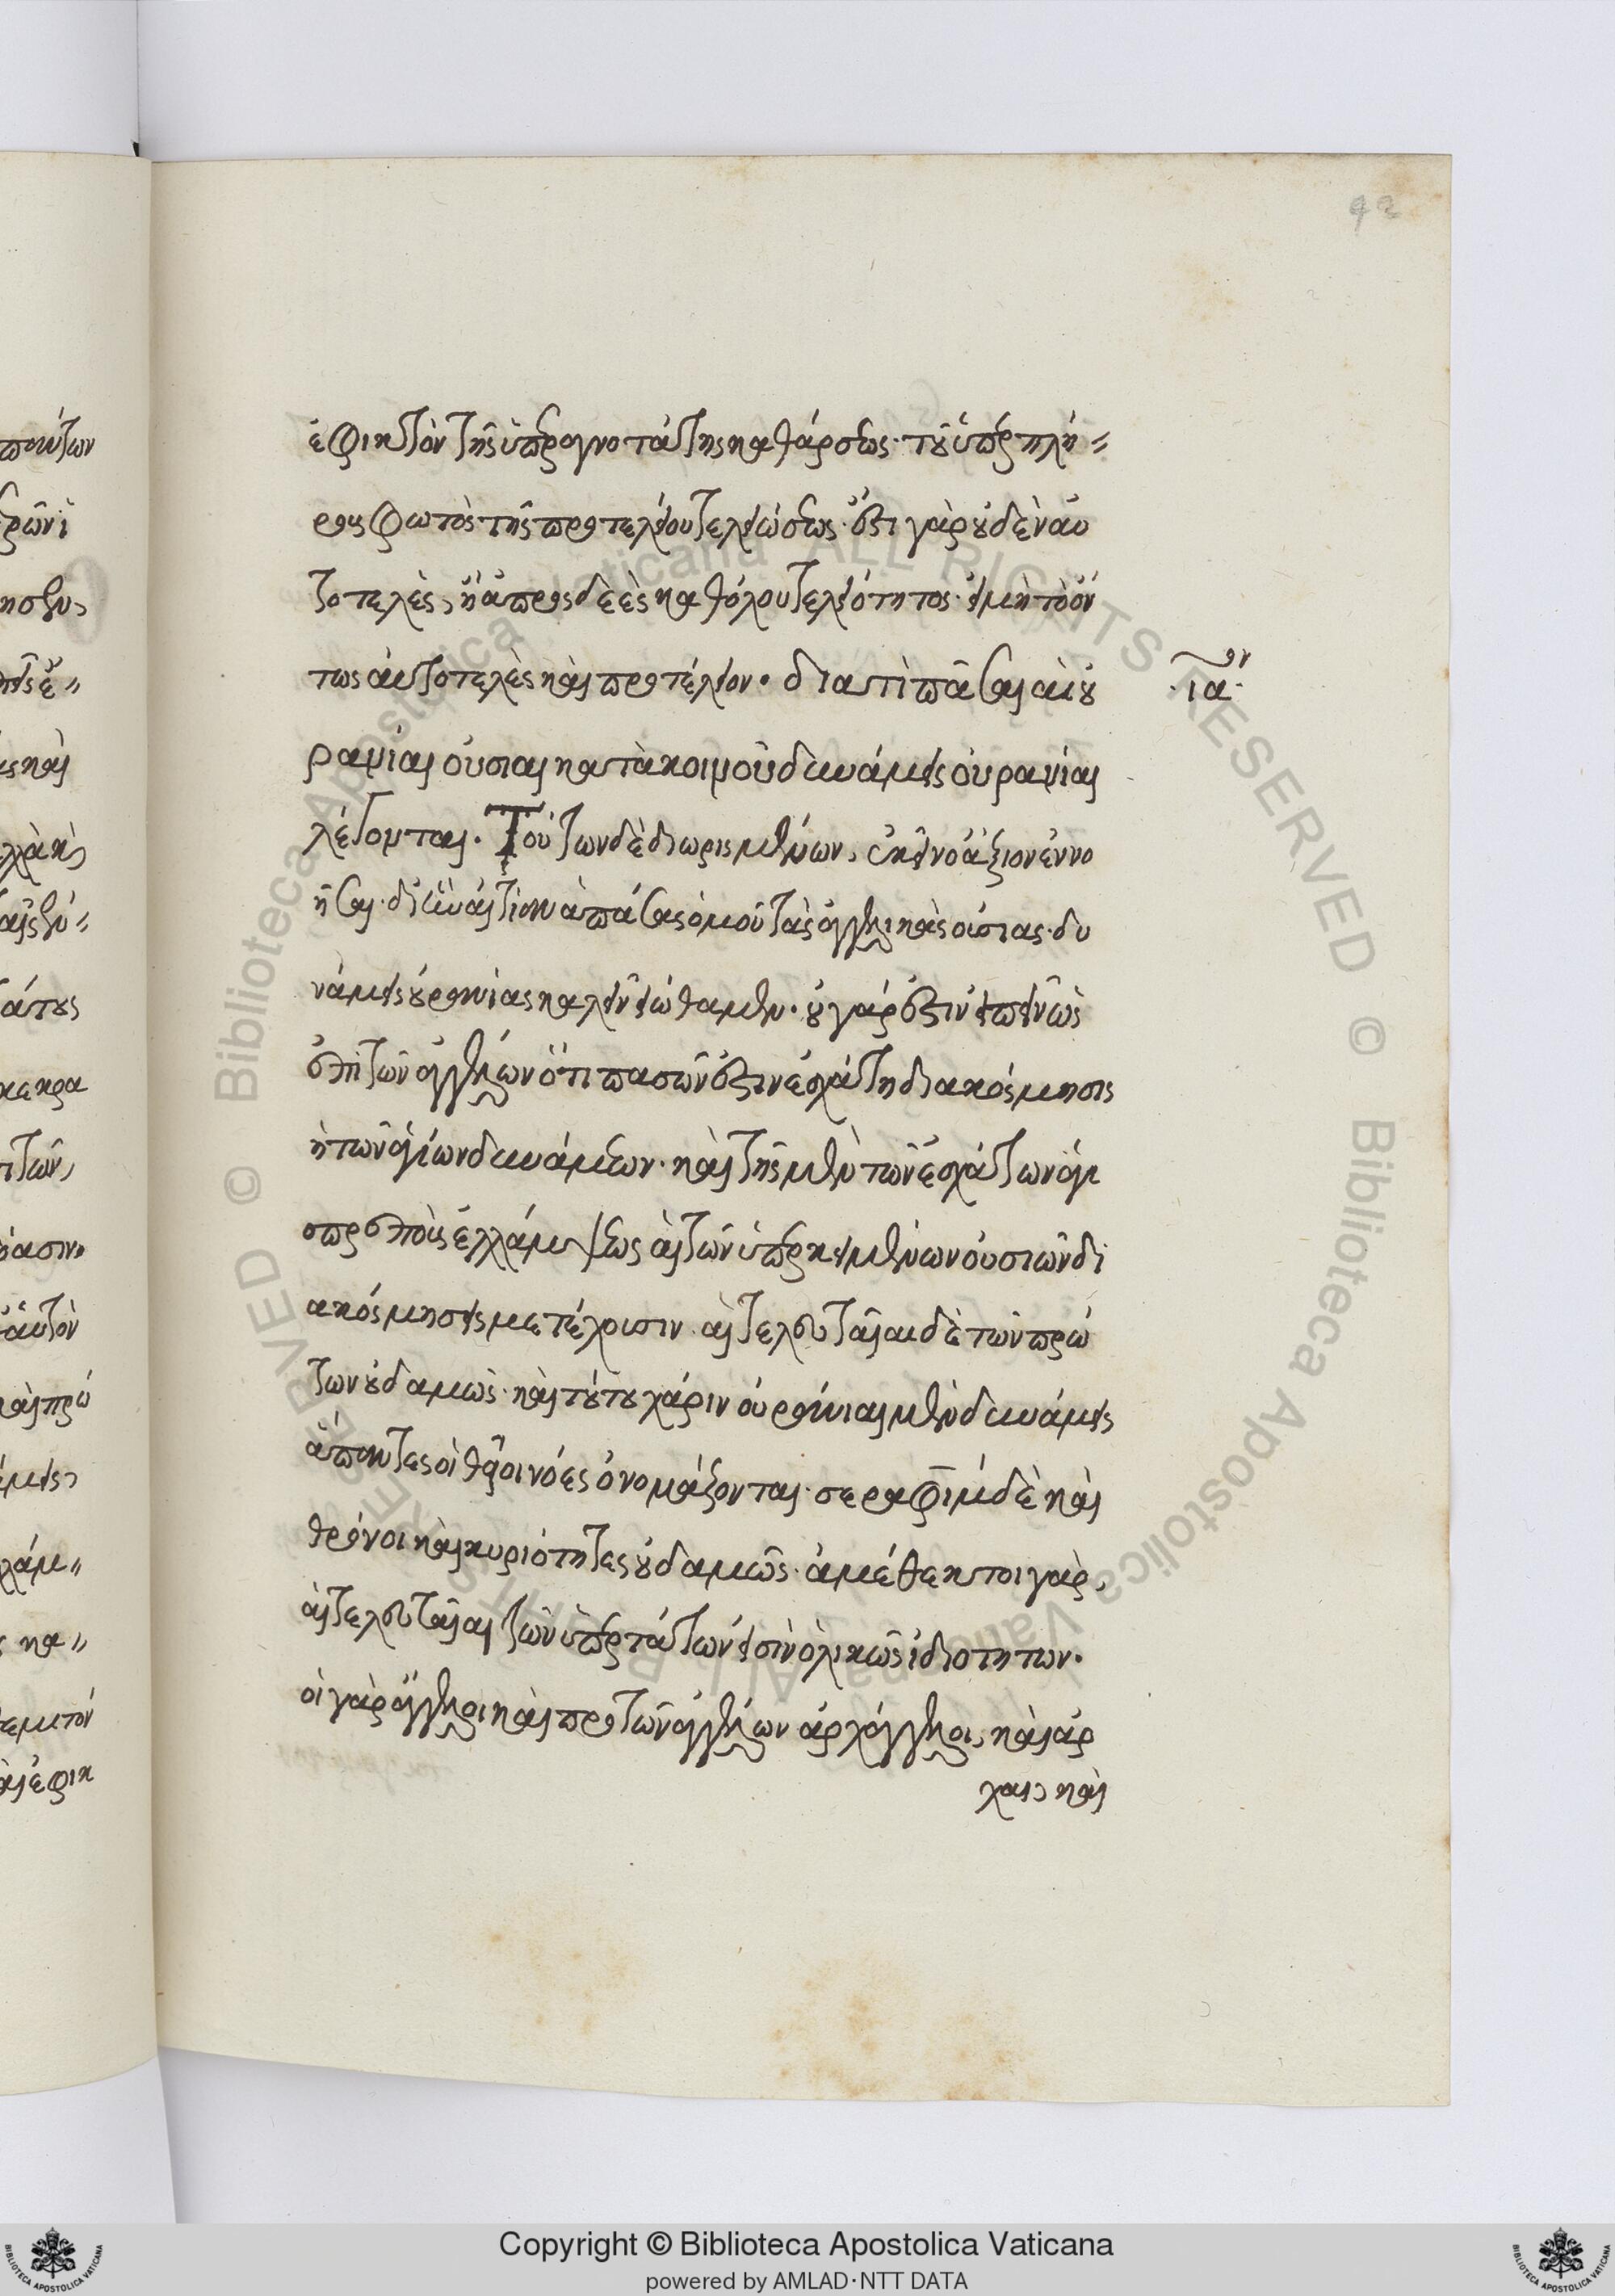 92
ἐφικτὸν τῆς ὑπεραγνοτάτης καθάρσεως· τοῦ ὑπερπλή
ρους φωτὸς· τῆς προτελείου τελειώσεως· ἔστι γὰρ οὐδὲν αὐ
τοτελὲς, ἢ ἀπροσδεὲς καθόλου τελειότητος· εἰ μὴ τὸ ὄν
τως αὐτοτελὲς καὶ προτέλειον· διατὶ πᾶσαι αἱ οὐ
ιαον
ράνιαι οὐσίαι κατὰ κοινοῦ δυνάμεις οὐράνιαι
λέγονται. Τούτων δὲ διωρισμένων, ἐκεῖνο ἄξιον ἐννο
ῆσαι· δι' ἣν αἰτίαν ἁπάσας ὁμοῦ τὰς ἀγγελικὰς οὐσίας· δυ
νάμεις οὐρανίας καλεῖν εἰώθαμεν· οὐ γάρ ἐστιν εἰπεῖν ὡς
ἐπὶ τῶν ἀγγέλων ὅτι πασῶν ἐστιν ἐσχάτη διακόσμησις
ἡ τῶν ἁγίων δυνάμεων· καὶ τῆς μὲν τῶν ἐσχάτων ἁγι
οπρεποῦς ἐλλάμψεως αἱ τῶν ὑπερκειμένων οὐσιῶν δι
ακόσμησεις μετέχουσιν· αἱ τελευταῖαι δὲ τῶν πρώ
των οὐδαμῶς· καὶ τούτου χάριν οὐράνιαι μὲν δυνάμεις
ἅπαντες οἱ θεῖοι νόες ὀνομάζονται· σεραφὶμ δὲ καὶ
θρόνοι καὶ κυριότητες οὐδαμῶς· ἀμέθεκτοι γὰρ,
αἱ τελευταῖαι τῶν ὑπερτάτων εἰσὶν ὁλικῶς ἰδιοτήτων·
οἱ γὰρ ἄγγελοι καὶ πρὸ τῶν ἀγγέλων ἀρχάγγελοι, καὶ ἀρ
χαι, καὶ
Copyright © Biblioteca Apostolica Vaticana
powered by AMLAD·NTT DATA